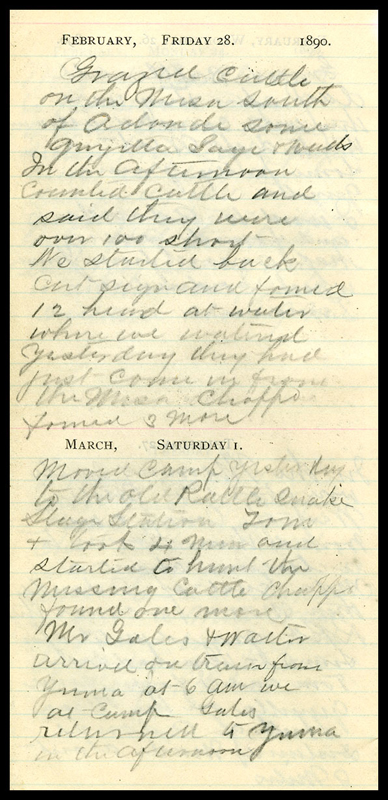 FEBRUARY, FRIDAY 28. 1890.
Grazed Cattle
on the Mesa South
of Adonde some
Sage & Weeds
In the Afternoon
Counted Cattle and
said they were
over 100 short
We started back
Cut sign and
12 head at water
where we watered
Yesterday they had
just come in from
the Mesa Chappo
3 more
MARCH, SATURDAY 1.
Moved Camp yesterday
to the old Rattle Snake
Stage Station Tom
+ took 4 men and
started to hunt the
missing Cattle Chappo
found one more
Mr Gales & Walter
arrived on train from
Yuma at 6 am we
at Camp Gales
returned to Yuma
in the afternoon